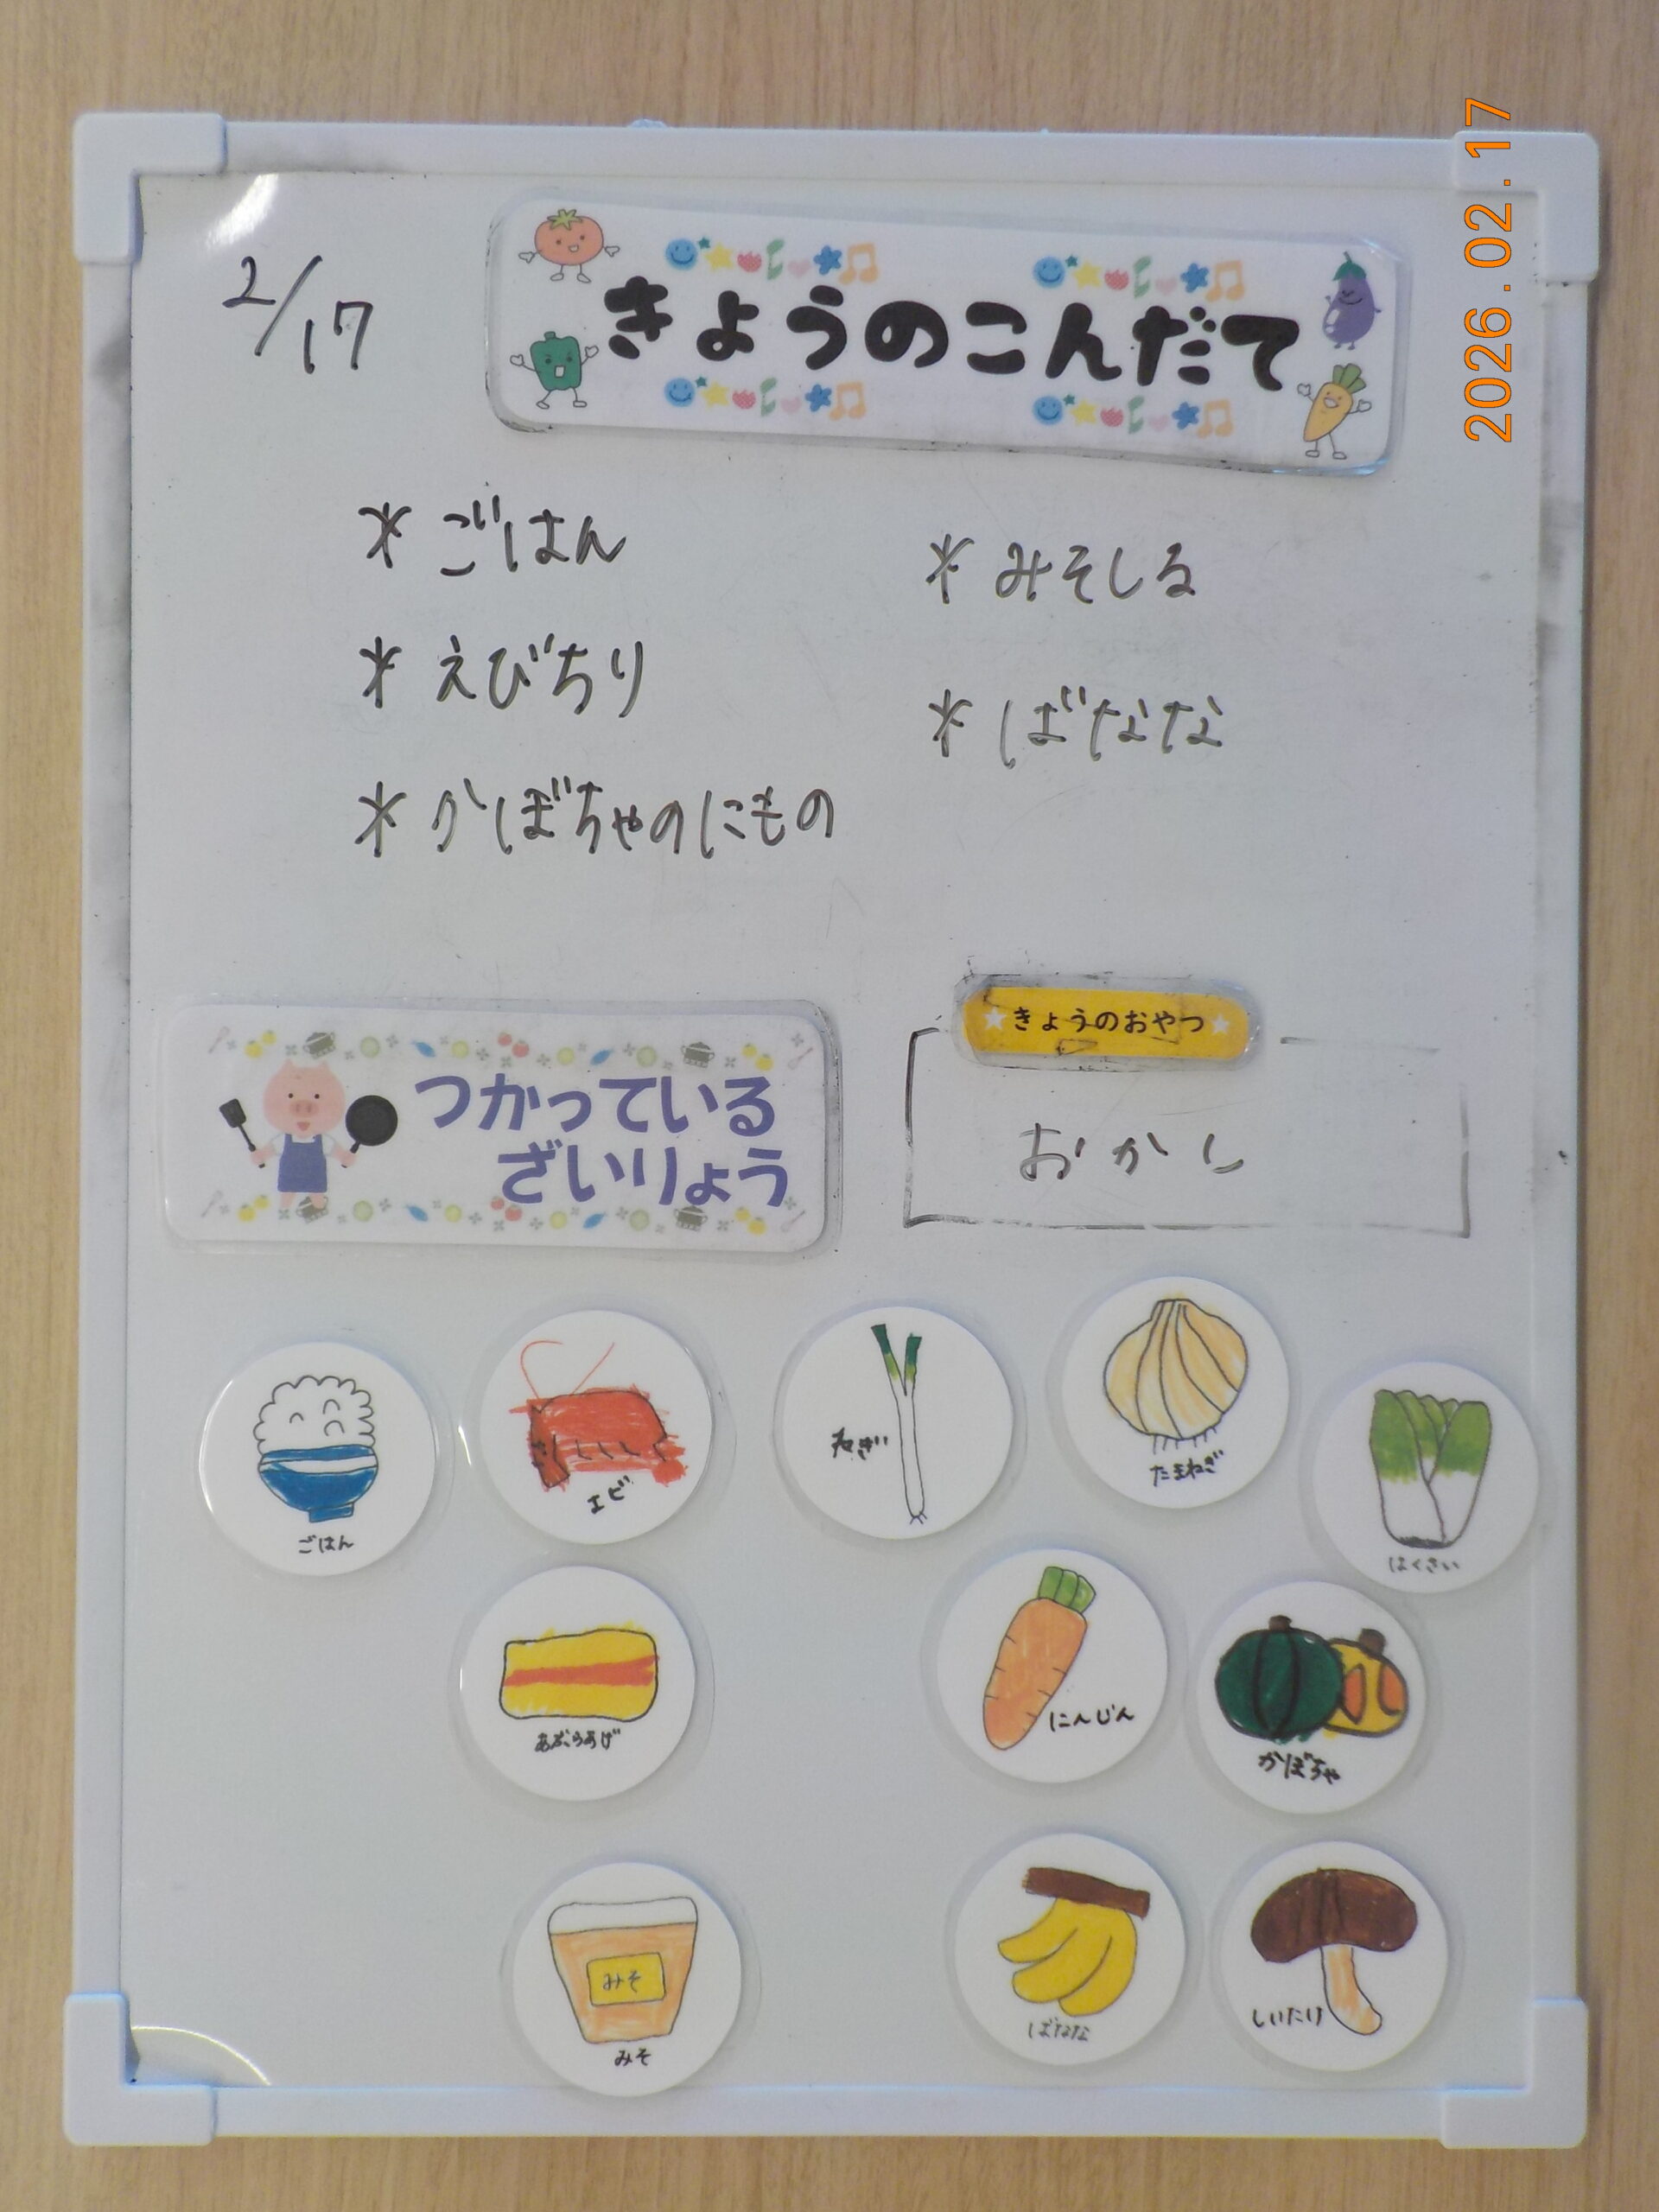 2026.02.17
2/17
きょうのこんだて
* ごはん
* えびちり
* かぼちゃのにもの
* みそしる
* ばなな
つかっている
ざいりょう
きょうのおやつ
おかし
ごはん
エビ
ねぎ
たまねぎ
はくさい
あぶらあげ
にんじん
かぼちゃ
みそ
みそ
ばなな
しいたけ